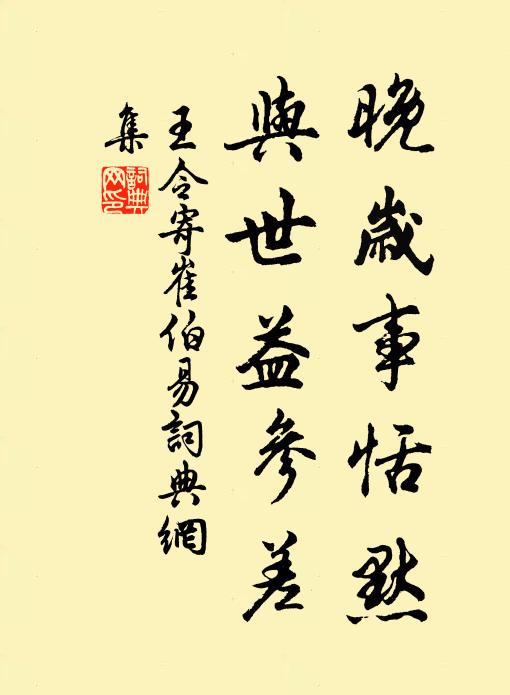 晚歲事恬默
與世益參差
王令寄崔伯易詞典網
集
詞典网印